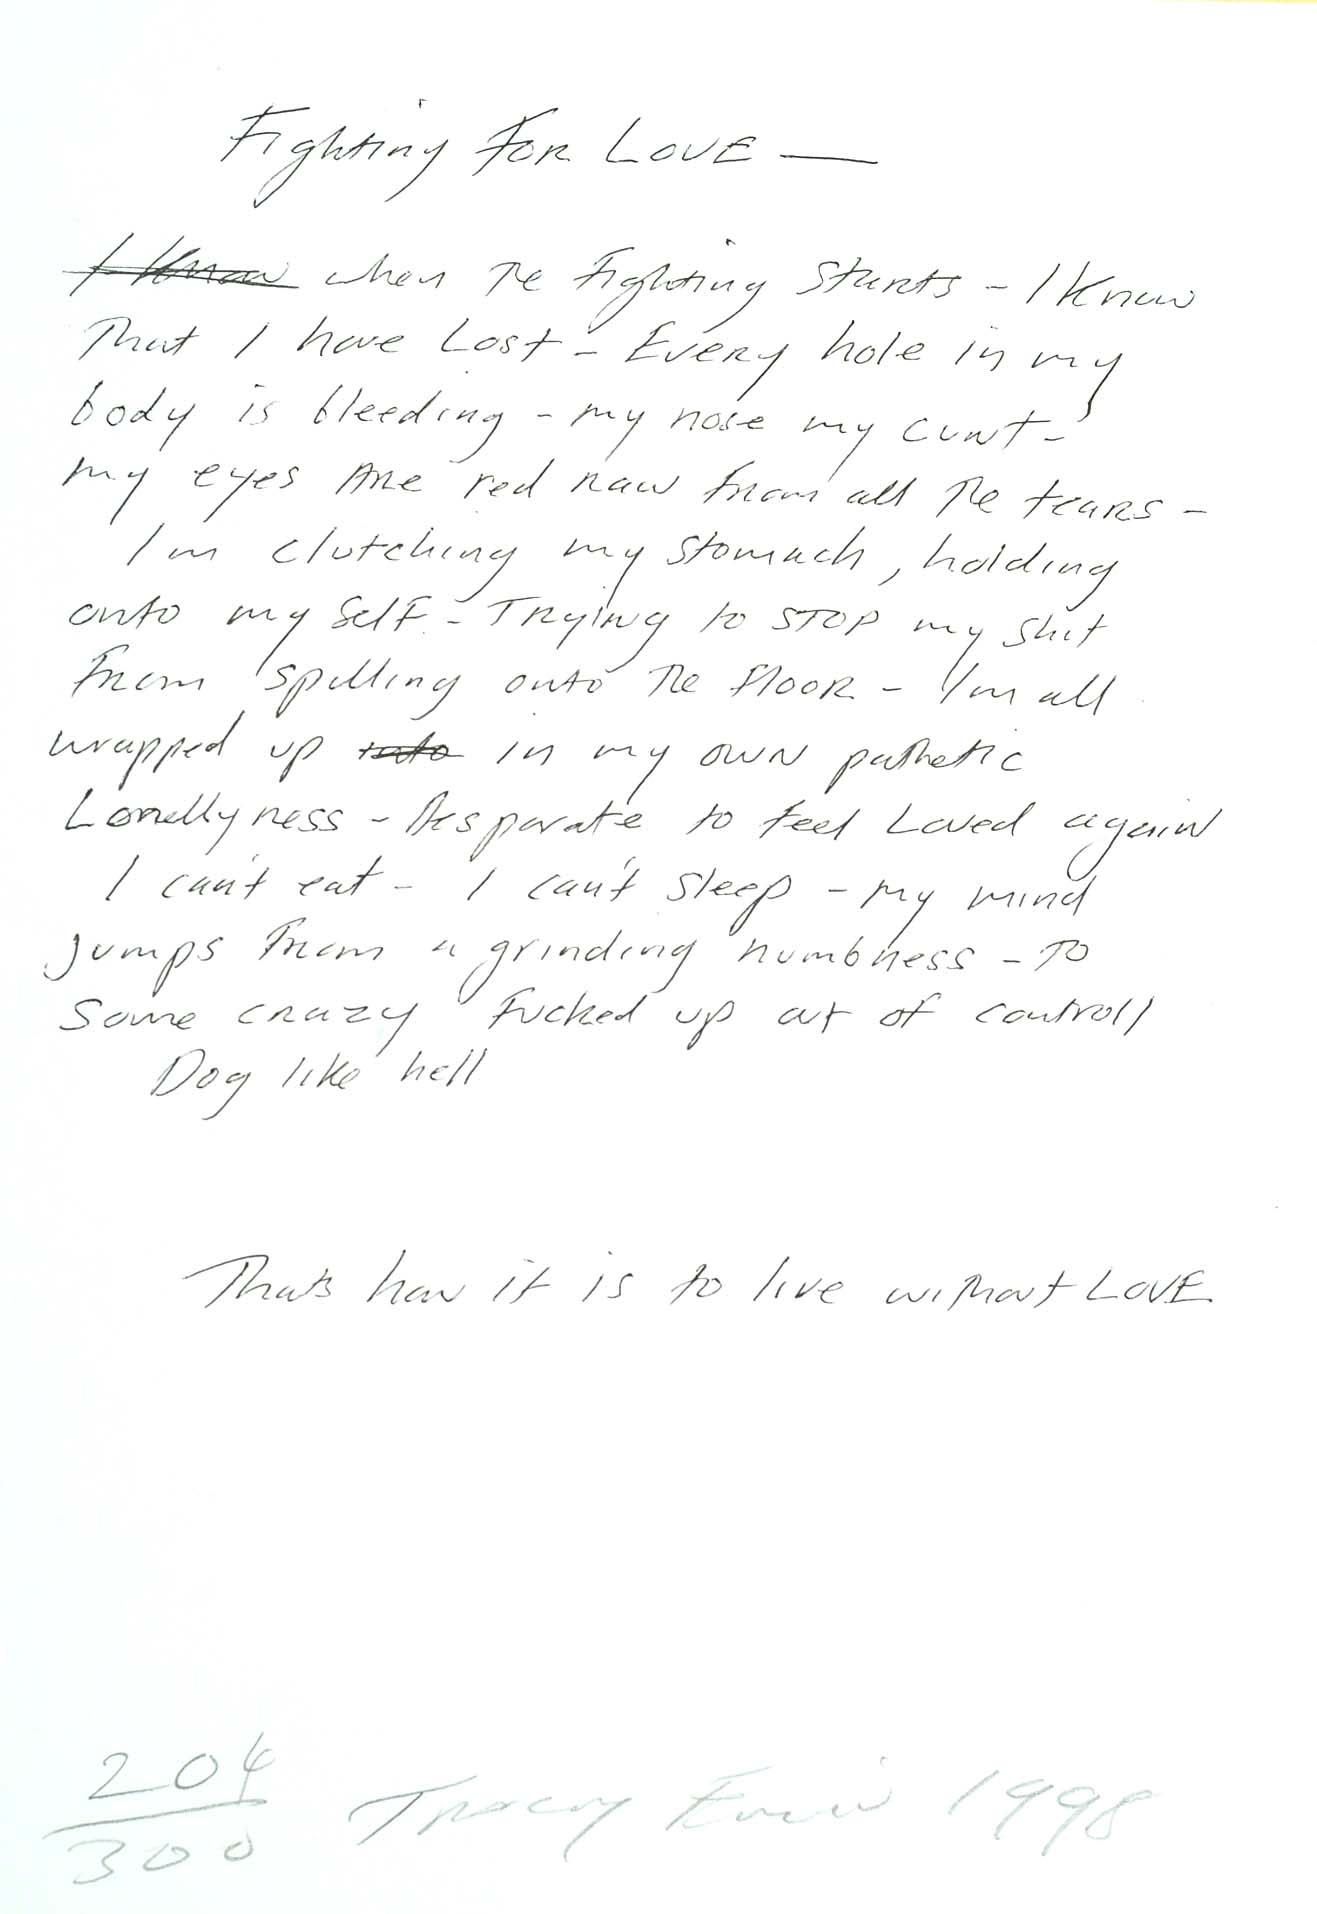 Fighting FOR LOVE —
I know when The Fighting Starts - I Know
That I have Lost - Every hole in my
body is bleeding - my nose my cunt -
my eyes Are red raw from all The tears -
I'm clutching my stomach, holding
onto my Self - Trying to STOP my shit
From spilling onto The FlooR - I'm all
wrapped up into in my own pathetic
Lonellyness - Desparate to feel Loved again
I can't eat - I can't Sleep - my mind
Jumps From a grinding numbness - To
Some crazy Fucked up out of controll
Dog like hell
Thats how it is to live without LOVE
204
300
Tracey Emin 1998